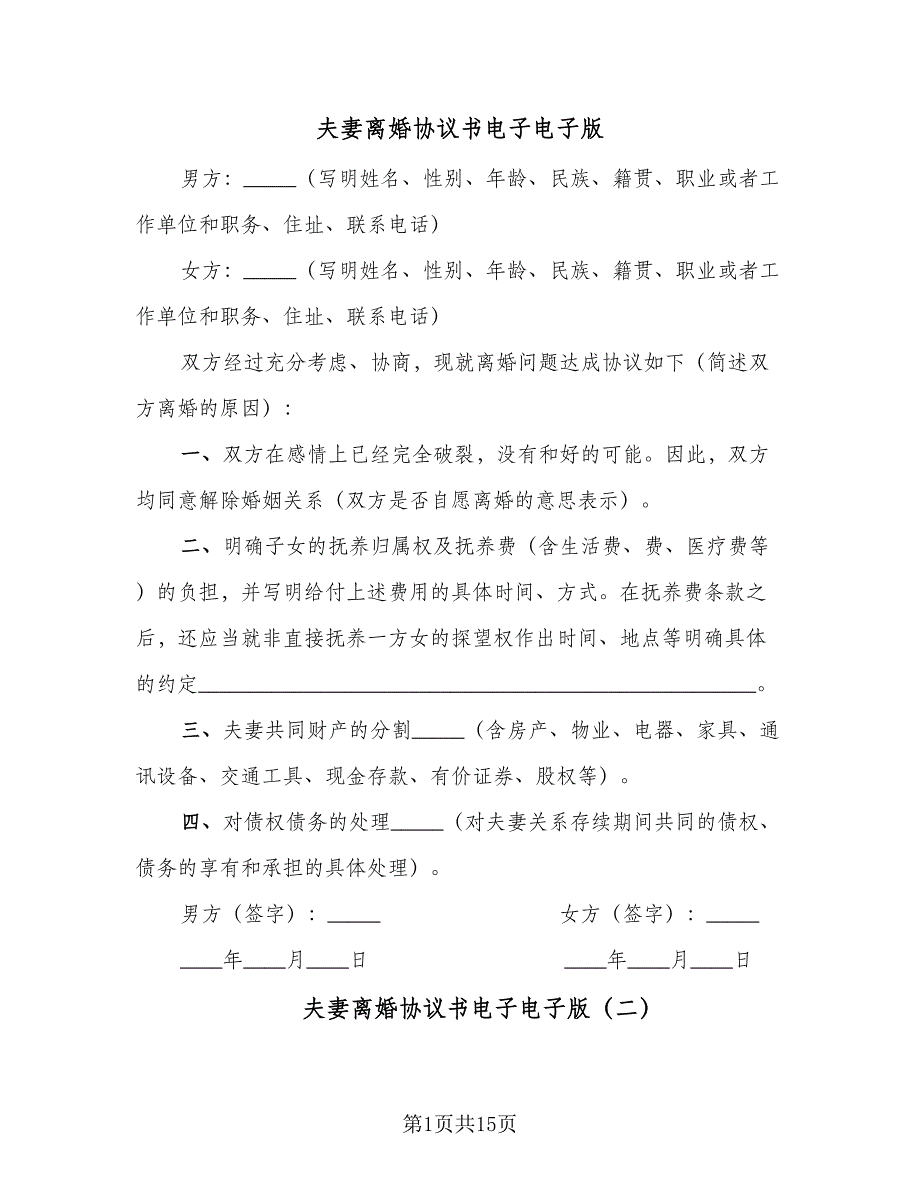 夫妻离婚协议书电子电子版
男方：_____（写明姓名、性别、年龄、民族、籍贯、职业或者工
作单位和职务、住址、联系电话）
女方：_____（写明姓名、性别、年龄、民族、籍贯、职业或者工
作单位和职务、住址、联系电话）
双方经过充分考虑、协商，现就离婚问题达成协议如下（简述双
方离婚的原因）：
一、双方在感情上已经完全破裂，没有和好的可能。因此，双方
均同意解除婚姻关系（双方是否自愿离婚的意思表示）。
二、明确子女的抚养归属权及抚养费（含生活费、费、医疗费等
）的负担，并写明给付上述费用的具体时间、方式。在抚养费条款之
后，还应当就非直接抚养一方女的探望权作出时间、地点等明确具体
的约定_____________________________________________________。
三、夫妻共同财产的分割_____（含房产、物业、电器、家具、通
讯设备、交通工具、现金存款、有价证券、股权等）。
四、对债权债务的处理_____（对夫妻关系存续期间共同的债权、
债务的享有和承担的具体处理）。
男方（签字）：_____ 女方（签字）：_____
____年____月____日 ____年____月____日
夫妻离婚协议书电子电子版（二）
第1页共15页